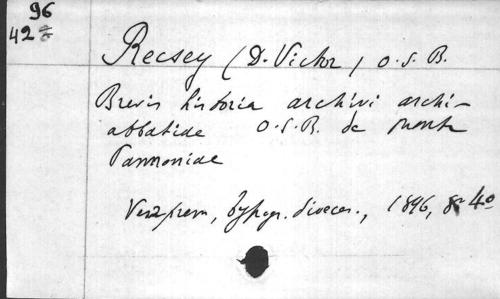 96
42
Recsey (D. Victor) O.S.B.
Brevis historia archivi archi-
abbatiae O.S.B. de monte
Pannoniae
Veszprem, typogr. dioeces., 1896, 4o